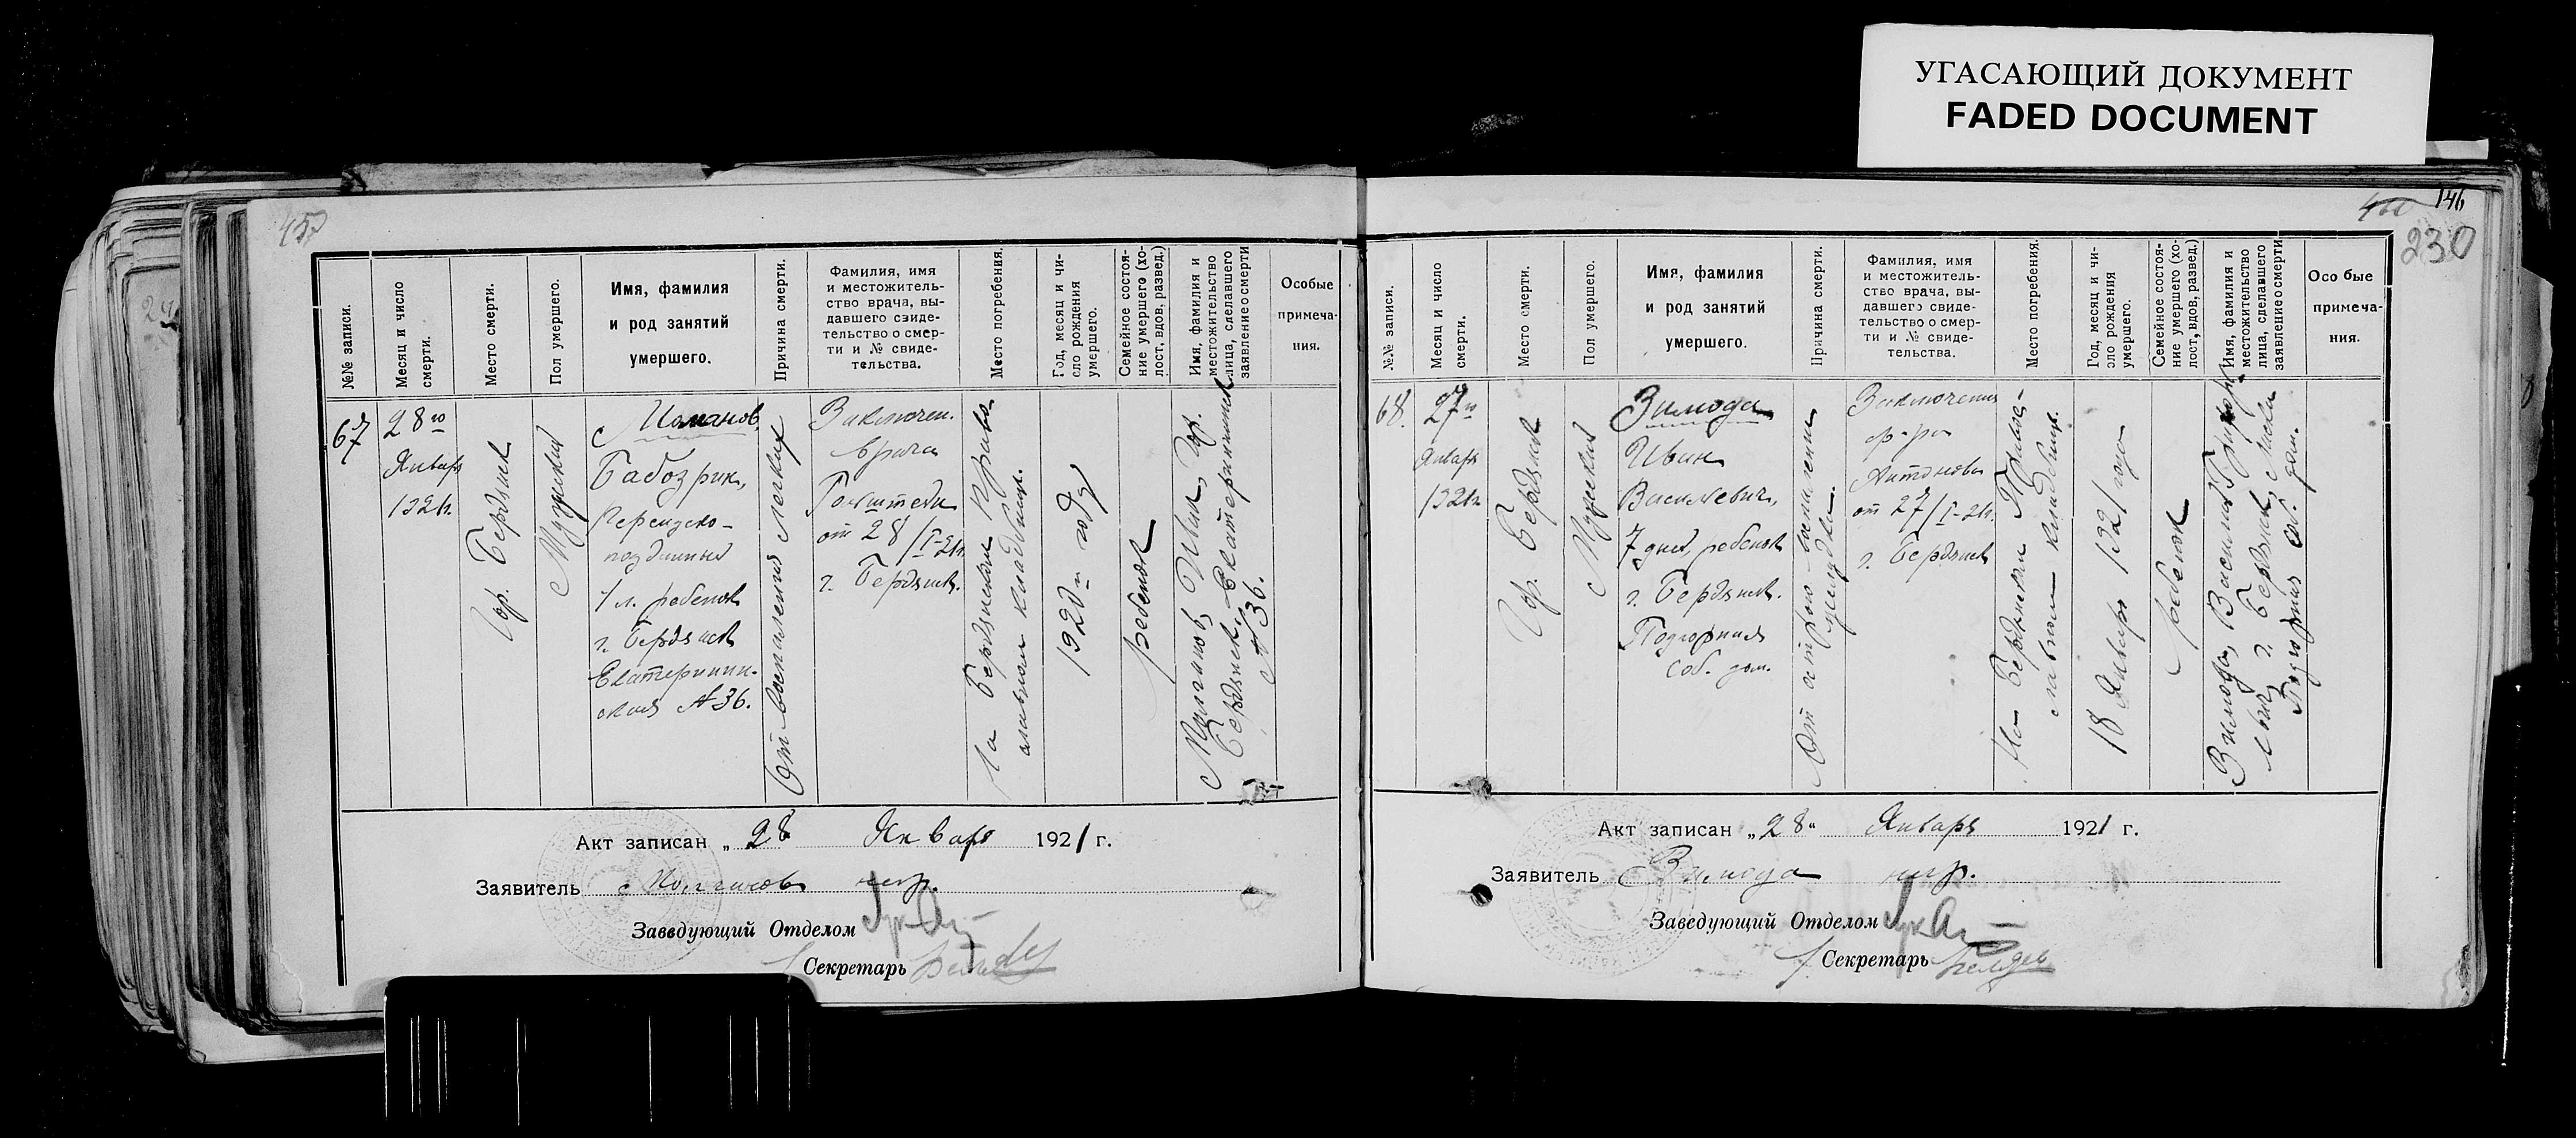 УГАСАЮЩИЙ ДОКУМЕНТ
FADED DOCUMENT
№№ записи.
Месяц и число
смерти.
Место смерти.
Пол умершего.
Имя, фамилия
и род занятий
умершего.
Причина смерти.
Фамилия, имя
и местожитель-
ство врача, вы-
давшего свиде-
тельство о смер-
ти и № свиде-
тельства.
Место погребения.
Год, месяц и чи-
сло рождения
умершего.
Семейное состоя-
ние умершего (хо-
лост, вдов, развед.)
Имя, фамилия и
местожительство
лица, сделавшего
заявление о смерти
Особые
примеча-
ния.
67
28го
Январь
1921г.
Гор. Бердянск
Мужской
Бабозрик,
Персидско-
подданный
1 л. ребенок
г. Бердянск
Екатеринин-
ская № 36.
От воспаления легких
Заключен.
врача
от 28/I-21г.
г. Бердянск.
На Бердянском Право-
славном кладбище.
1920м году
ребенок
Бердянск, Екатерининская
№ 36.
Акт записан „ 28 Январь 1921 г.
Заявитель
Заведующий Отделом
Секретарь
146
230
№№ записи.
Месяц и число
смерти.
Место смерти.
Пол умершего.
Имя, фамилия
и род занятий
умершего.
Причина смерти.
Фамилия, имя
и местожитель-
ство врача, вы-
давшего свиде-
тельство о смер-
ти и № свиде-
тельства.
Место погребения.
Год, месяц и чи-
сло рождения
умершего.
Семейное состоя-
ние умершего (хо-
лост, вдов, развед.)
Имя, фамилия и
местожительство
лица, сделавшего
заявление о смерти
Особые
примеча-
ния.
68.
27го
Январь
1921г.
Гор. Бердянск
Мужской
Зимода
Иван
Васильевич,
7 дней, ребенок
г. Бердянск.
Подгорная
соб. дом.
От остр
Заключения
д-ра
Антонова
от 27/I-21г.
г. Бердянск
На Бердянском Право-
славном кладбище.
18 Январь 1921 года
ребенок
Зимода, Василий
г. Бердянск,
Подгорная соб. дом.
Акт записан „28“ Январь 1921 г.
Заявитель Зимода
Заведующий Отделом
Секретарь